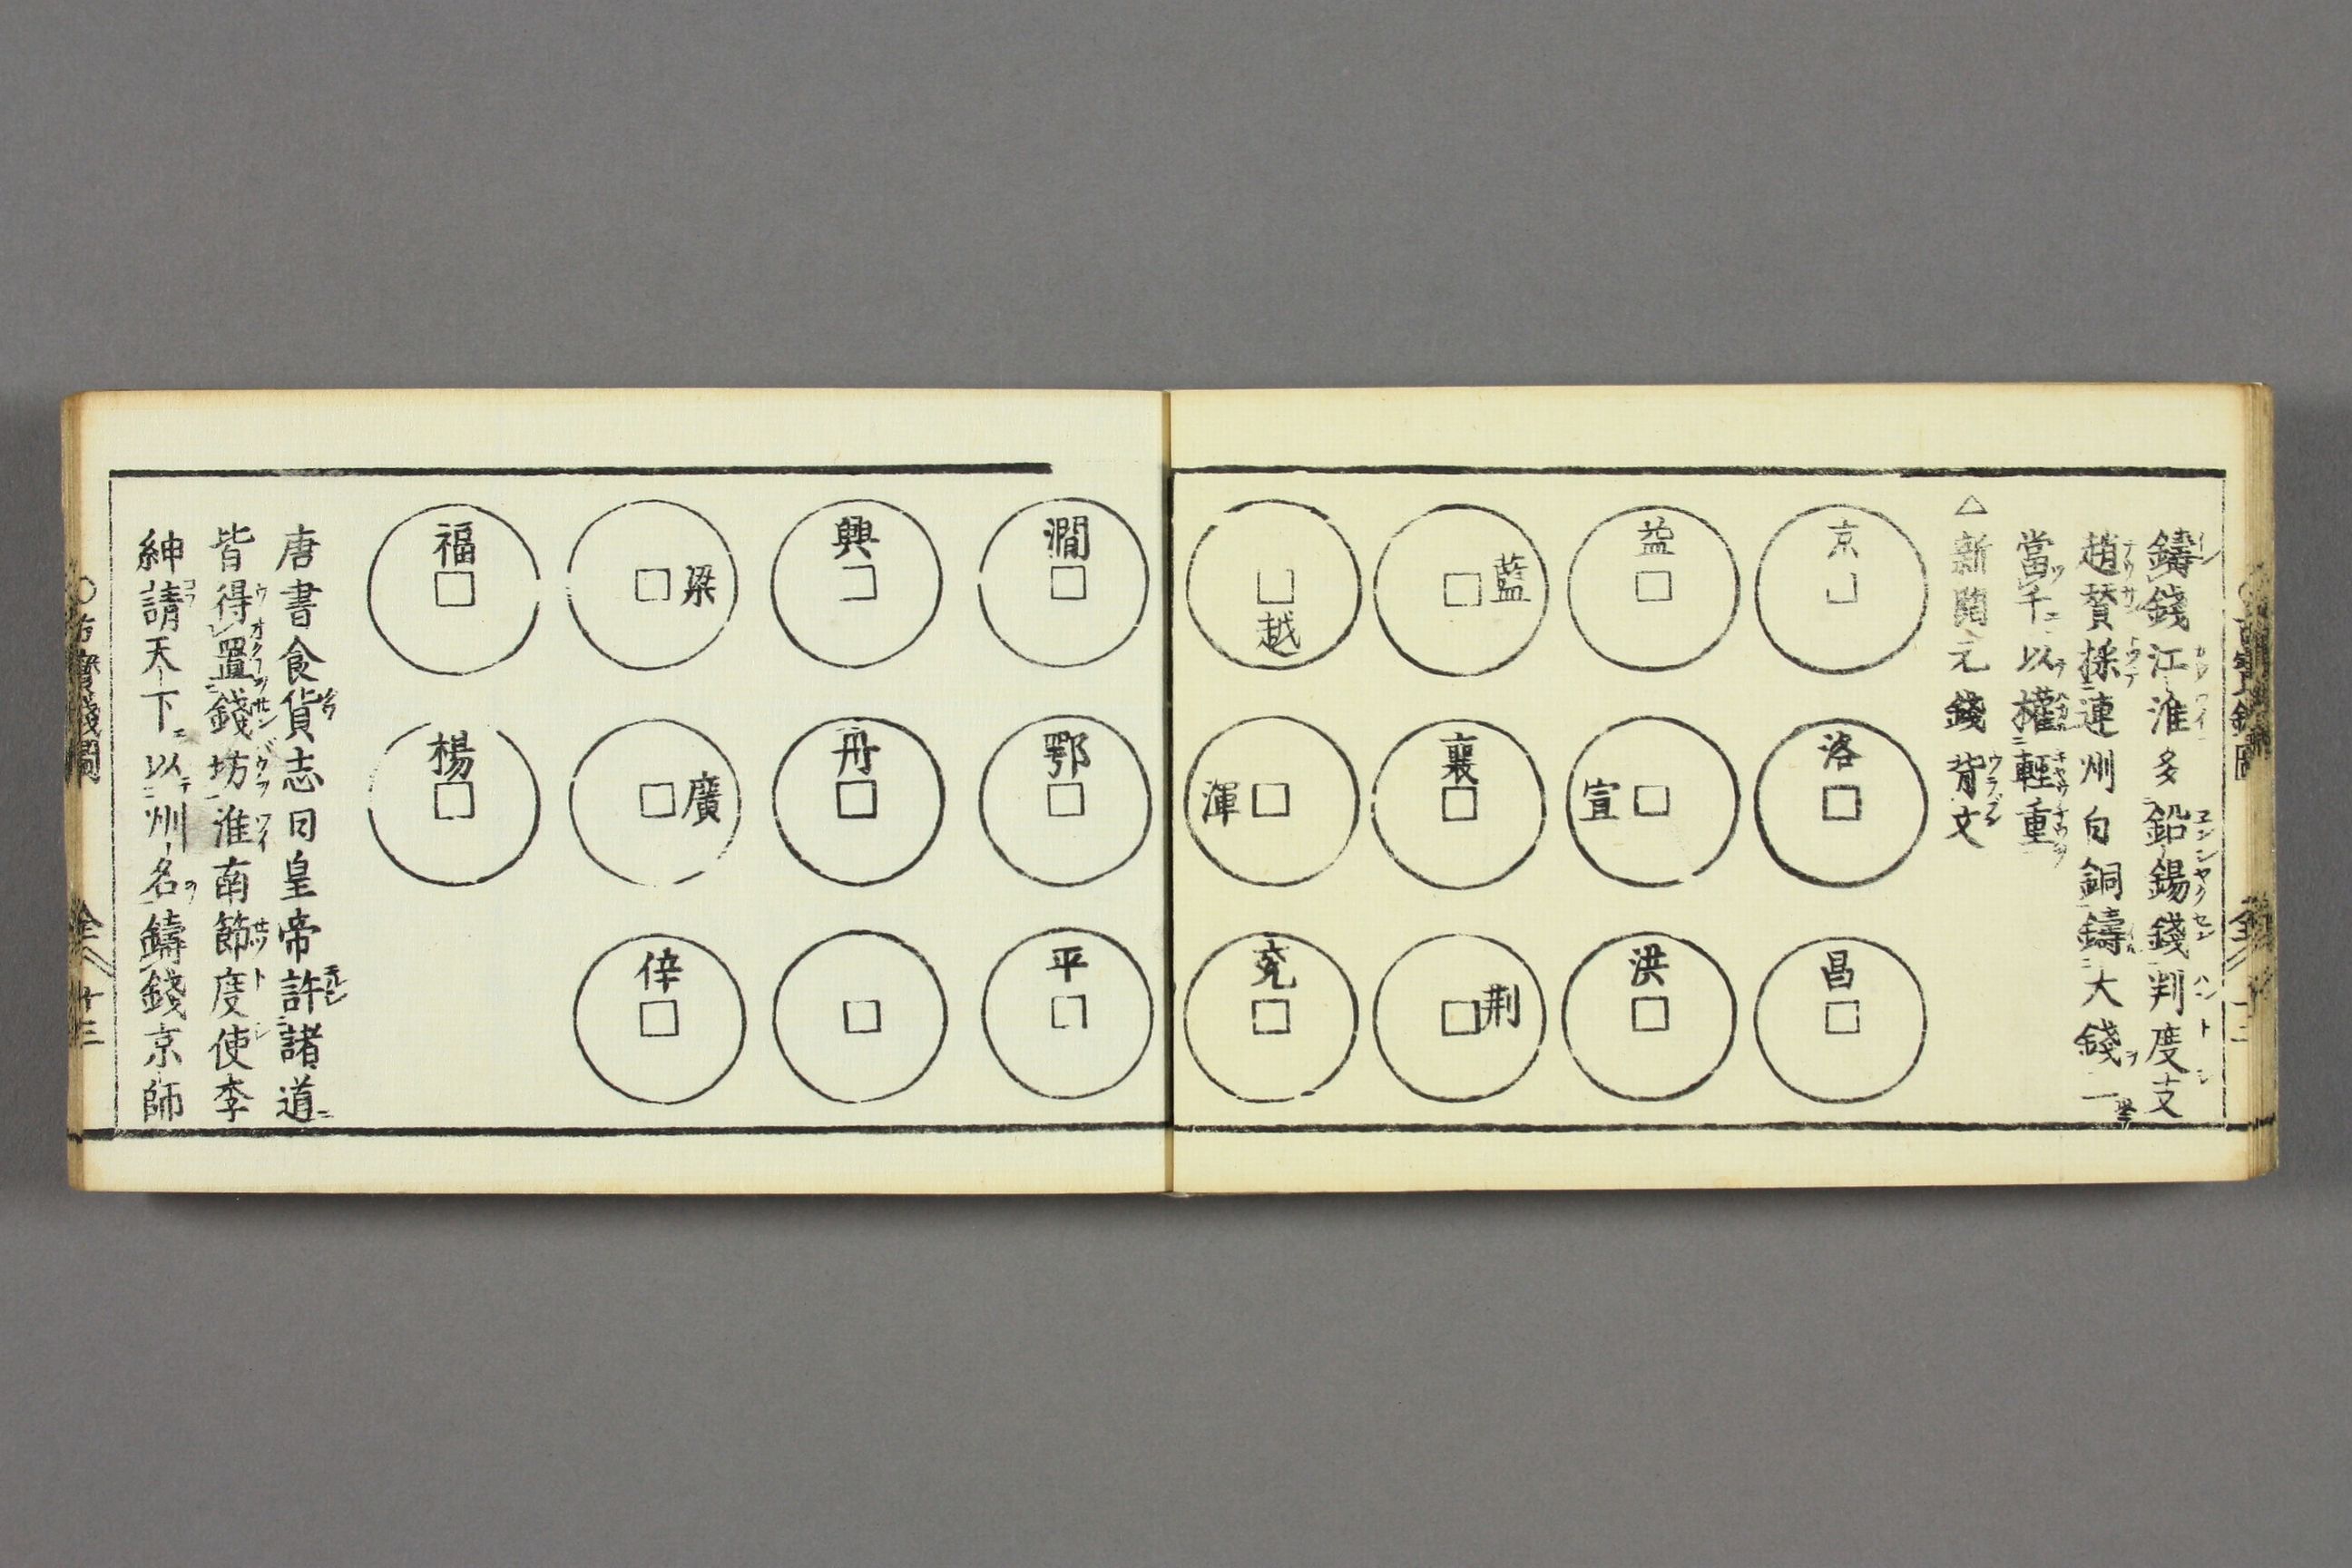 鑄錢江淮多鉛錫錢判度支
趙贊採連州白銅鑄大錢一
當千以權輕重
△新開元錢背文
京
洛
昌
益
宣
洪
藍
襄
荆
越
潭
兗
澗
鄂
平
興
丹
梁
廣
梓
福
楊
唐書食貨志曰皇帝許諸道
皆得置錢坊淮南節度使李
紳請天下以州名鑄錢京師